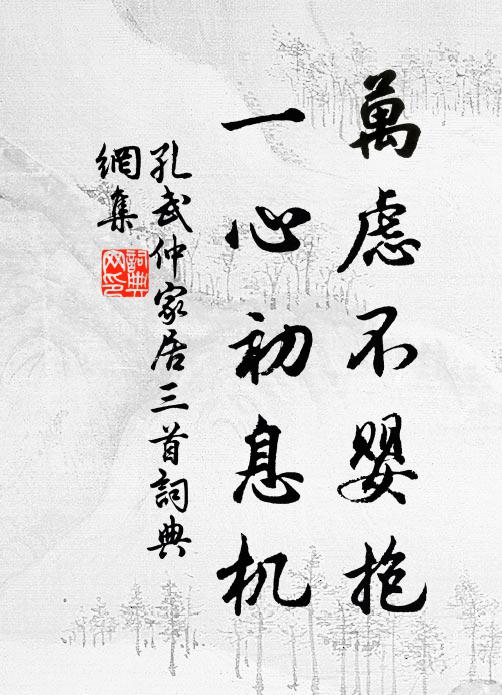 萬慮不嬰抱
一心初息机
孔武仲家居三首詞典
網集
詞典
网印